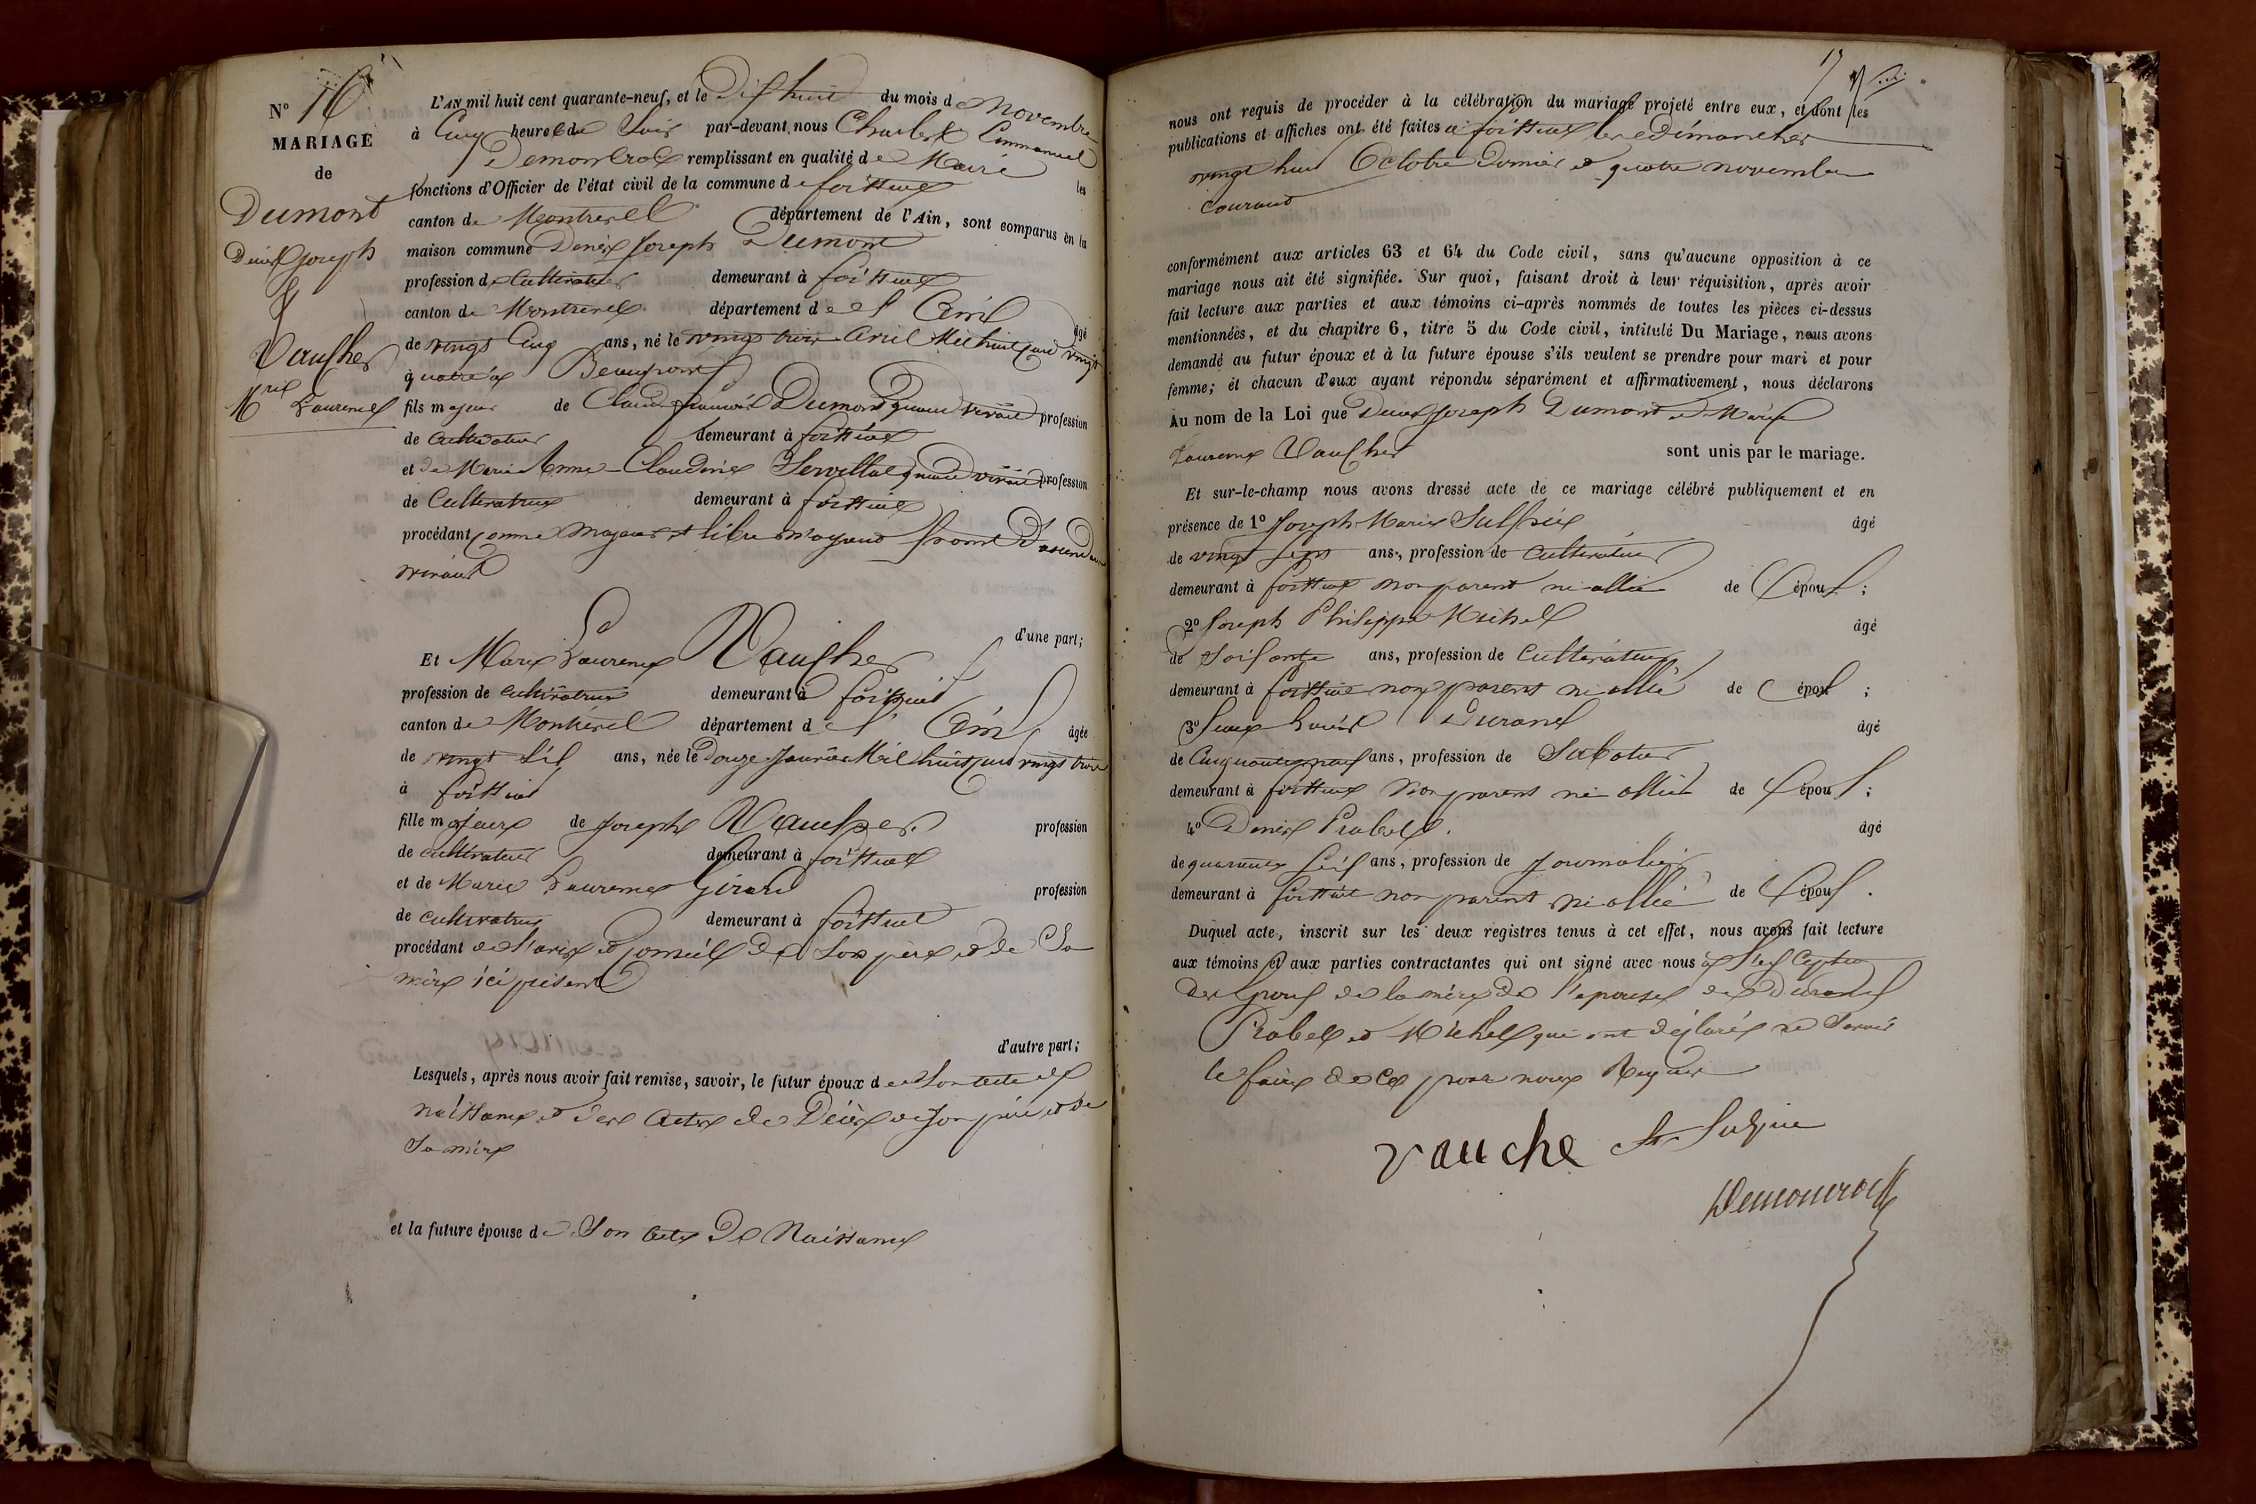 N° 16
MARIAGE
de
Dumont
Denis Joseph
&
Vaucher
Mrie Laurence
L'AN mil huit cent quarante-neuf, et le dix huit du mois de Novembre
à Cinq heures du Soir par-devant nous Charles Emmanuel
remplissant en qualité de Maire les
fonctions d'Officier de l'état civil de la commune de foissiat
canton de Montrevel département de l'Ain, sont comparus en la
maison commune Denis Joseph Dumont
profession de Cultivateur demeurant à foissiat
canton de Montrevel département de l'Ain âgé
de vingt Cinq ans, né le vingt trois avril Mil huit cent vingt
quatre à Beaupont
fils majeur de Claude françois Dumont quand vivait profession
de Cultivateur demeurant à foissiat
et de Marie Anne Claudine quand vivait profession
de Cultivatrice demeurant à foissiat
procédant comme Majeur et libre n'ayant
vivant
d'une part;
Et Marie Laurence Vaucher
profession de cultivatrice demeurant à foissiat
canton de Montrevel département de l'Ain âgée
de vingt six ans, née le Douze Janvier Mil huit cent vingt trois
à foissiat
fille majeure de Joseph Vaucher profession
de cultivateur demeurant à foissiat
et de Marie Laurence Girard profession
de cultivatrice demeurant à foissiat
procédant de l'avis et conseil de Son père et de Sa
mère ici présent
d'autre part;
Lesquels, après nous avoir fait remise, savoir, le futur époux de Son acte de
naissance et des actes de Décès de Son père et de
Sa mère
et la future épouse de Son acte De Naissance
17
nous ont requis de procéder à la célébration du mariage projeté entre eux, et dont les
publications et affiches ont été faites à foissiat les dimanches
vingt huit Octobre Dernier et quatre novembre
courant
conformément aux articles 63 et 64 du Code civil, sans qu'aucune opposition à ce
mariage nous ait été signifiée. Sur quoi, faisant droit à leur réquisition, après avoir
fait lecture aux parties et aux témoins ci-après nommés de toutes les pièces ci-dessus
mentionnées, et du chapitre 6, titre 5 du Code civil, intitulé Du Mariage, nous avons
demandé au futur époux et à la future épouse s'ils veulent se prendre pour mari et pour
femme; et chacun d'eux ayant répondu séparément et affirmativement, nous déclarons
Au nom de la Loi que Denis Joseph Dumont et Marie
Laurence Vaucher sont unis par le mariage.
Et sur-le-champ nous avons dressé acte de ce mariage célébré publiquement et en
présence de 1° Joseph Marie Sulpice âgé
de vingt Sept ans, profession de Cultivateur
demeurant à foissiat non parent ni allié de l'époux;
2° Joseph Philippe Michel âgé
de Soixante ans, profession de Cultivateur
demeurant à foissiat non parent ni allié de l'époux;
3° Durand âgé
de Cinquante neuf ans, profession de Sabotier
demeurant à foissiat Non parent ni allié de l'époux;
4° Denis Prabel âgé
de quarante Six ans, profession de Journalier
demeurant à foissiat non parent ni allié de l'époux.
Duquel acte, inscrit sur les deux registres tenus à cet effet, nous avons fait lecture
aux témoins et aux parties contractantes qui ont signé avec nous à l'exception
de l'époux de la mère de l'épouse de Durand
Prabel et Michel qui ont déclaré ne Savoir
le faire de ce par nous Requis
vauche St Sulpice